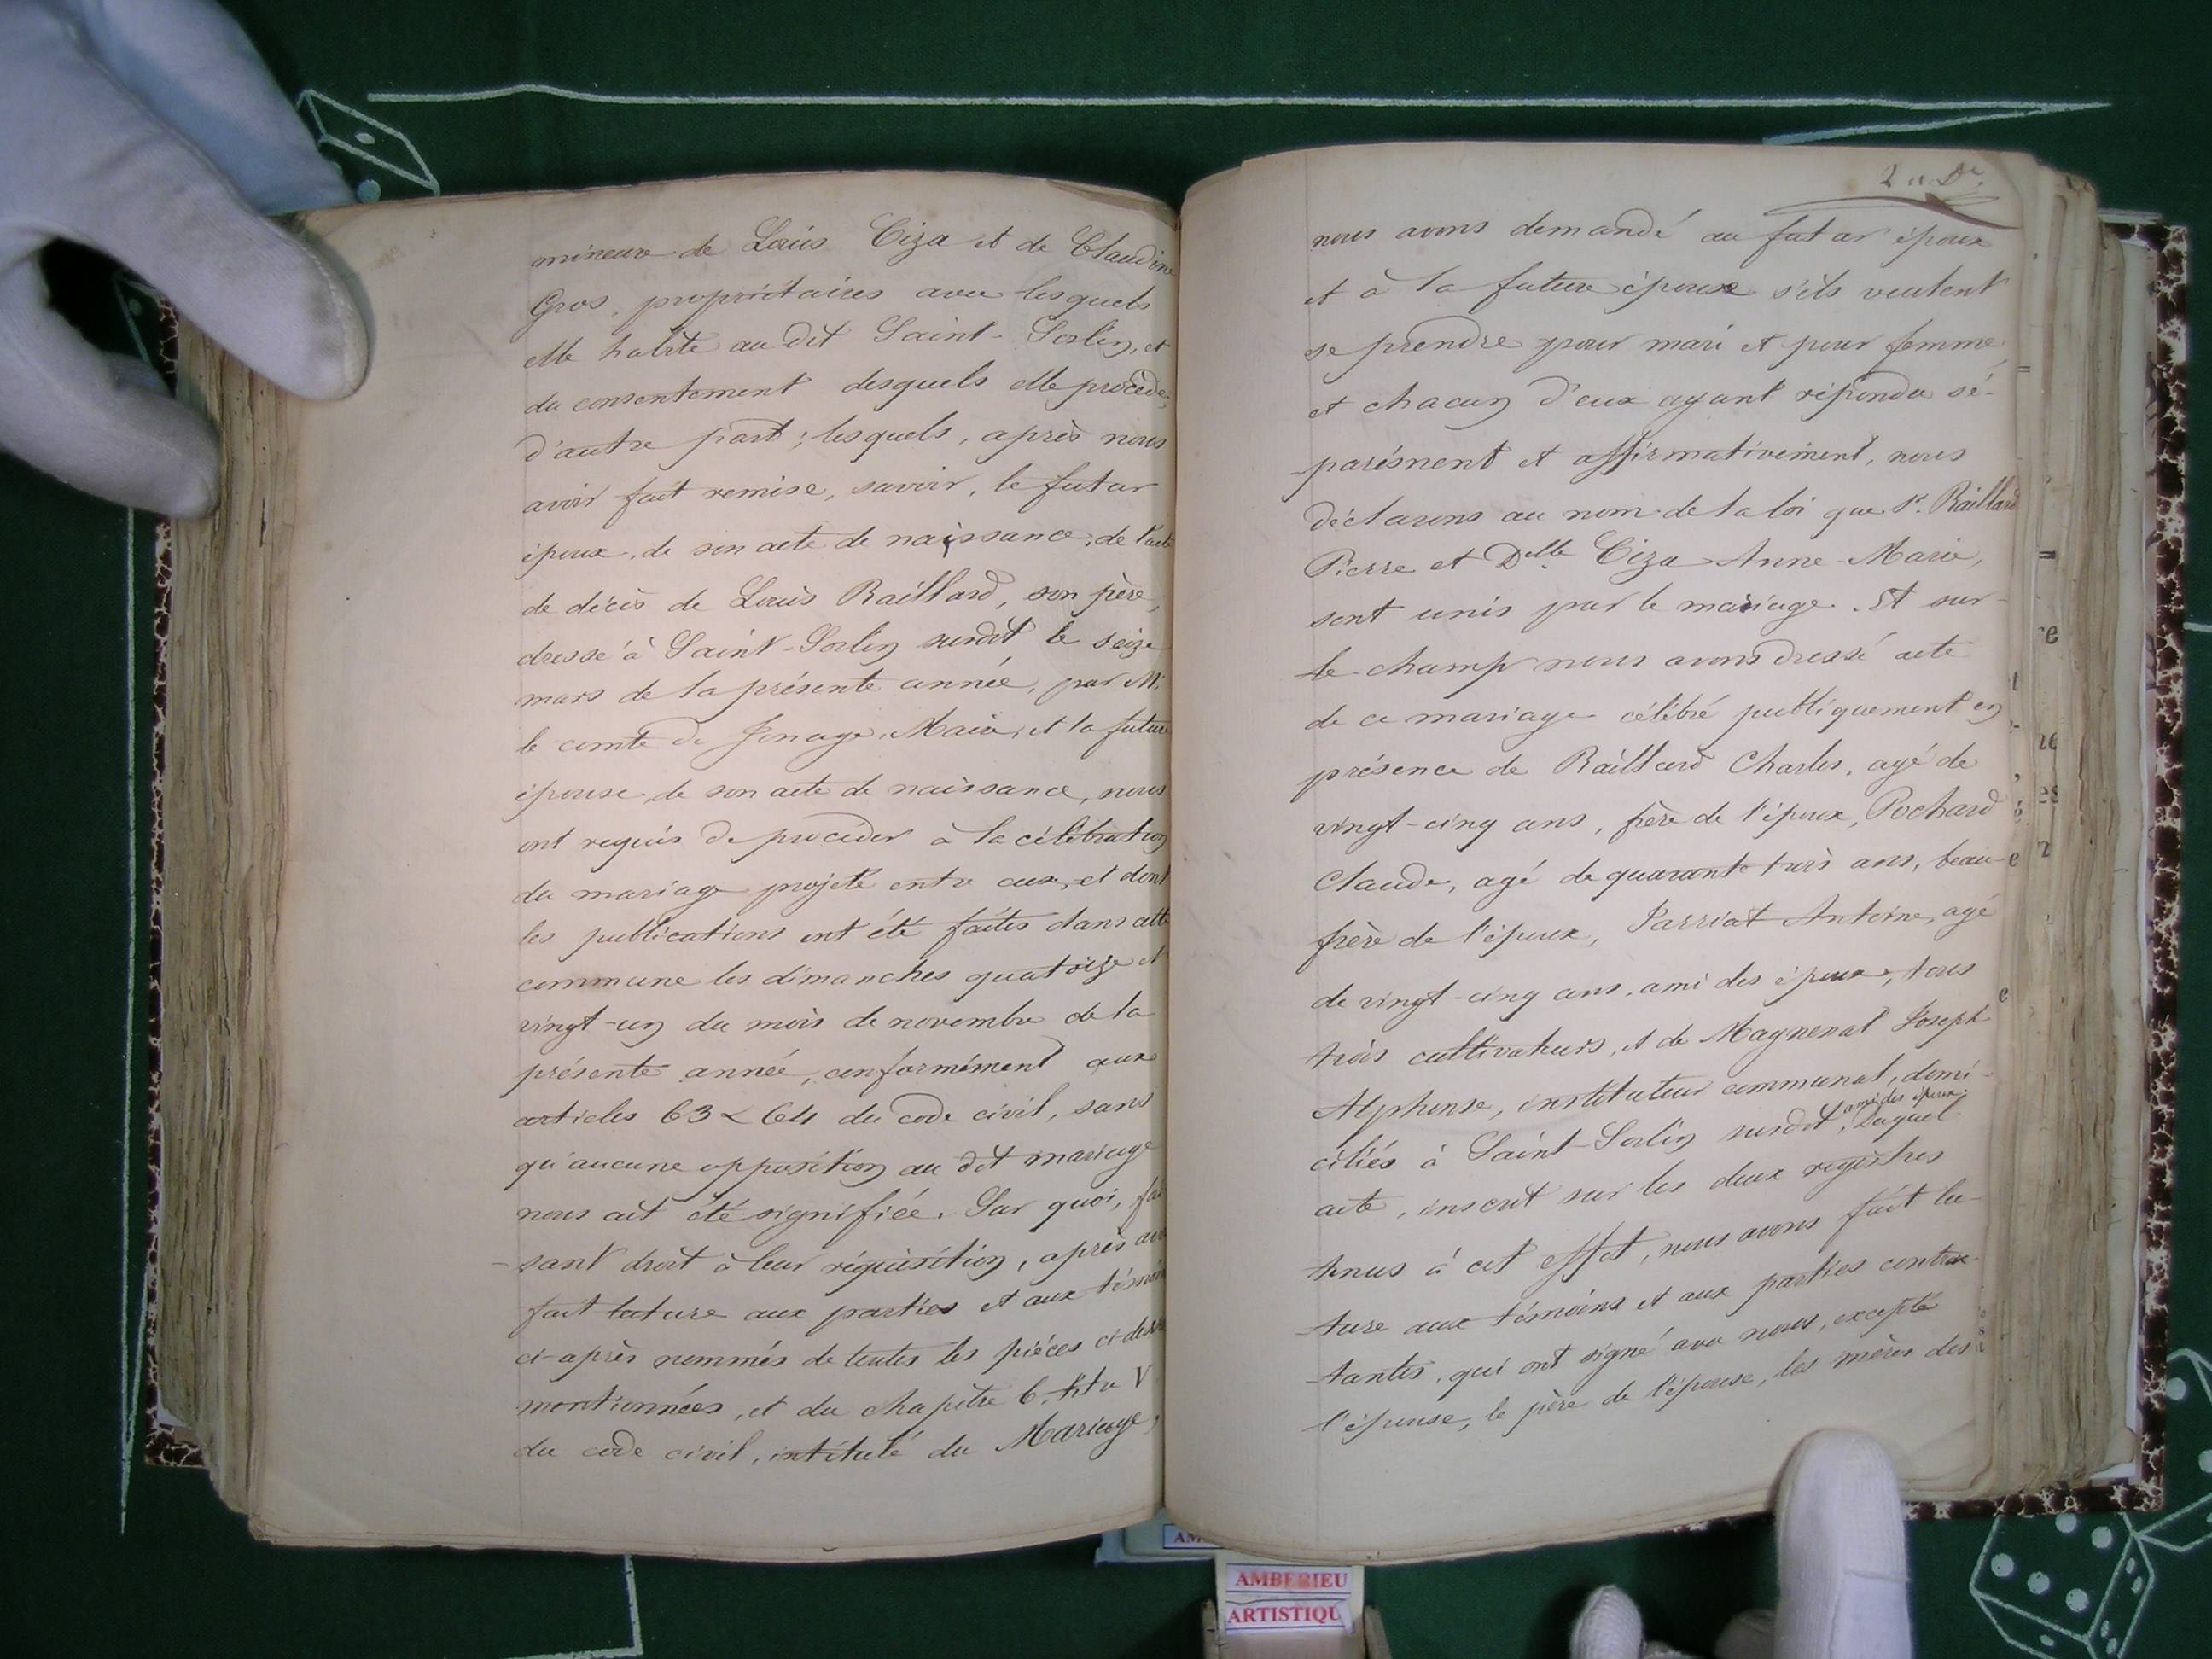 mineure de Louis Tiza et de Claudine
Gros, propriétaires avec lesquels
elle habite au dit Saint-Sorlin, et
du consentement desquels elle procède,
d'autre part ; lesquels, après nous
avoir fait remise, savoir, le futur
époux, de son acte de naissance, de l'acte
de décès de Louis Raillard, son père,
dressé à Saint-Sorlin susdit le seize
mars de la présente année, par M.
le comte de Jonage, Maire, et la future
épouse, de son acte de naissance, nous
ont requis de procéder à la célébration
du mariage projeté entre eux, et dont
les publications ont été faites dans cette
commune les dimanches quatorze et
vingt-un du mois de novembre de la
présente année, conformément aux
articles 63 & 64 du code civil, sans
qu'aucune opposition au dit mariage
nous ait été signifiée. Sur quoi, fai
-sant droit à leur réquisition, après avoir
fait lecture aux parties et aux témoins
ci-après nommés de toutes les pièces ci-dessus
mentionnées, et du chapitre 6, titre V
du code civil, intitulé du Mariage,
nous avons demandé au futur époux
et à la future épouse s'ils veulent
se prendre pour mari et pour femme
et chacun d'eux ayant répondu sé-
-parément et affirmativement, nous
déclarons au nom de la loi que Sr. Raillard
Pierre et Delle Tiza Anne-Marie,
sont unis par le mariage. Et sur-
le-champ nous avons dressé acte
de ce mariage célébré publiquement en
présence de Raillard Charles, agé de
vingt-cinq ans, frère de l'époux, Pochard
Claude, agé de quarante trois ans, beau-
frère de l'époux, Parriat Antoine, agé
de vingt-cinq ans, ami des époux, tous
trois cultivateurs, et de Magnenat Joseph
Alphonse, instituteur communal, domi-
ciliés à Saint-Sorlin susdit, ami des époux. Duquel
acte, inscrit sur les deux registres
tenus à cet effet, nous avons fait lec-
-ture aux témoins et aux parties contrac-
-tantes, qui ont signé avec nous, excepté
l'épouse, le père de l'épouse, les mères des
AMBERIEU
ARTISTIQU